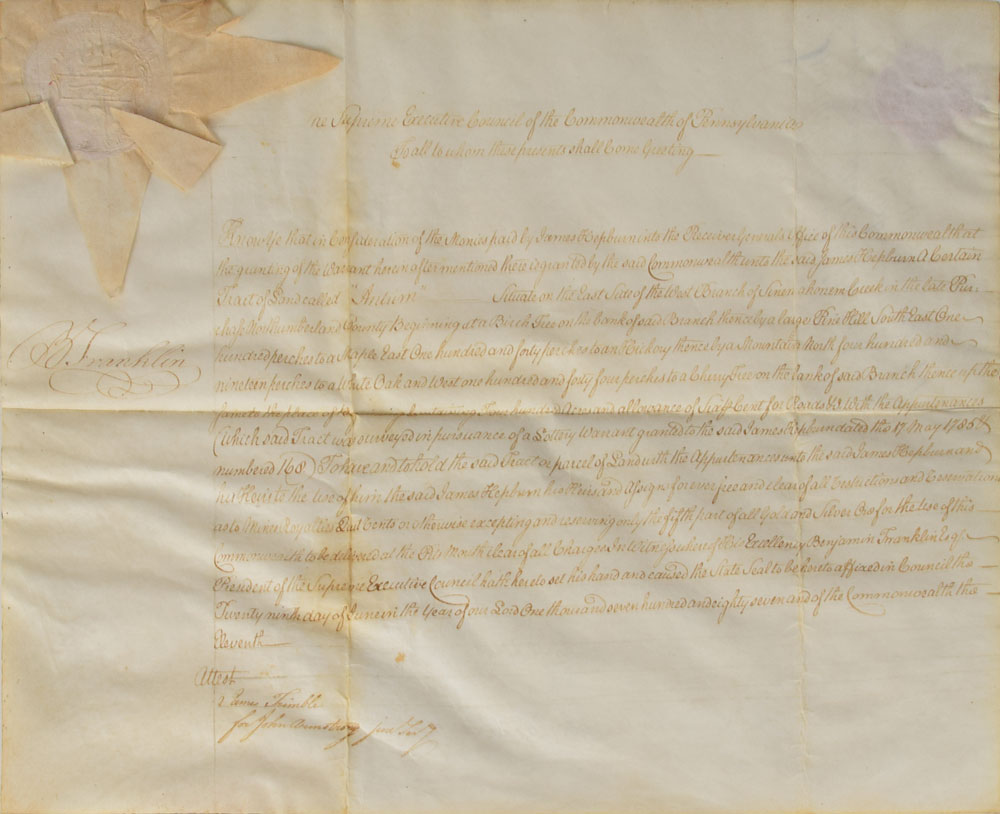 The Supreme Executive Council of the Commonwealth of Pennsylvania
To all to whom these presents shall Come Greeting
Know Ye that in Consideration of the Monies paid by James Hepburn into the Receiver Generals Office of this Commonwealth at
the granting of the Warrant herein after mentioned there is granted by the said Commonwealth unto the said James Hepburn A Certain
Tract of Land called " " Situate on the East Side of the West Branch of Creek in the late Pur-
chase Northumberland County Beginning at a Birch Tree on the bank of said Branch thence by a large Pine Hill South East One
B Franklin
hundred perches to a Maple East One hundred and forty perches to an Hickory thence by a Mountain North four hundred and
nineteen perches to a White Oak and West one hundred and forty four perches to a Cherry Tree on the bank of said Branch thence up the
same to the place of beginning Containing hundred Acres and allowance of Six ⅌ Cent for Roads &c With the Appurtenances
(Which said Tract was surveyed in pursuance of a Lottery Warrant granted to the said James Hepburn dated the 17 May 1785 &
numbered 168) To have and to hold the said Tract or parcel of Land with the Appurtenances unto the said James Hepburn and
his Heirs to the Use of him the said James Hepburn his Heirs and Assigns forever free and clear of all Restrictions and Reservations
as to Mines Royalties Quit Rents or otherwise excepting and reserving only the fifth part of all Gold and Silver Ore for the Use of this
Commonwealth to be delivered at the Pits Mouth clear of all Charges In Witness whereof His Excellency Benjamin Franklin Esqr
President of the Supreme Executive Council hath hereto set his hand and caused the State Seal to be hereto affixed in Council the
Twenty ninth day of June in the Year of our Lord One thousand seven hundred and eighty seven and of the Commonwealth the
Eleventh
Attest
James Trimble
for John Armstrong junr Secy